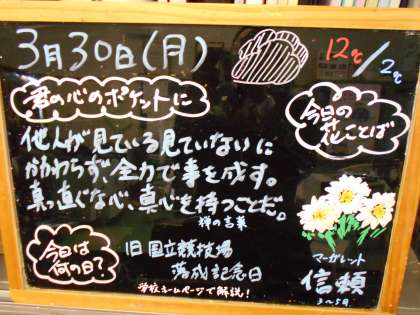 3月30日(月)
12℃/2℃
君の心のポケットに
他人が見ている見ていないに
かかわらず、全力で事を成す。
真っ直ぐな心、真心を持つことだ。
禅の言葉
今日の
花ことば
マーガレット
信頼
3〜5月
今日は
何の日?
旧国立競技場
落成記念日
学校ホームページで解説!